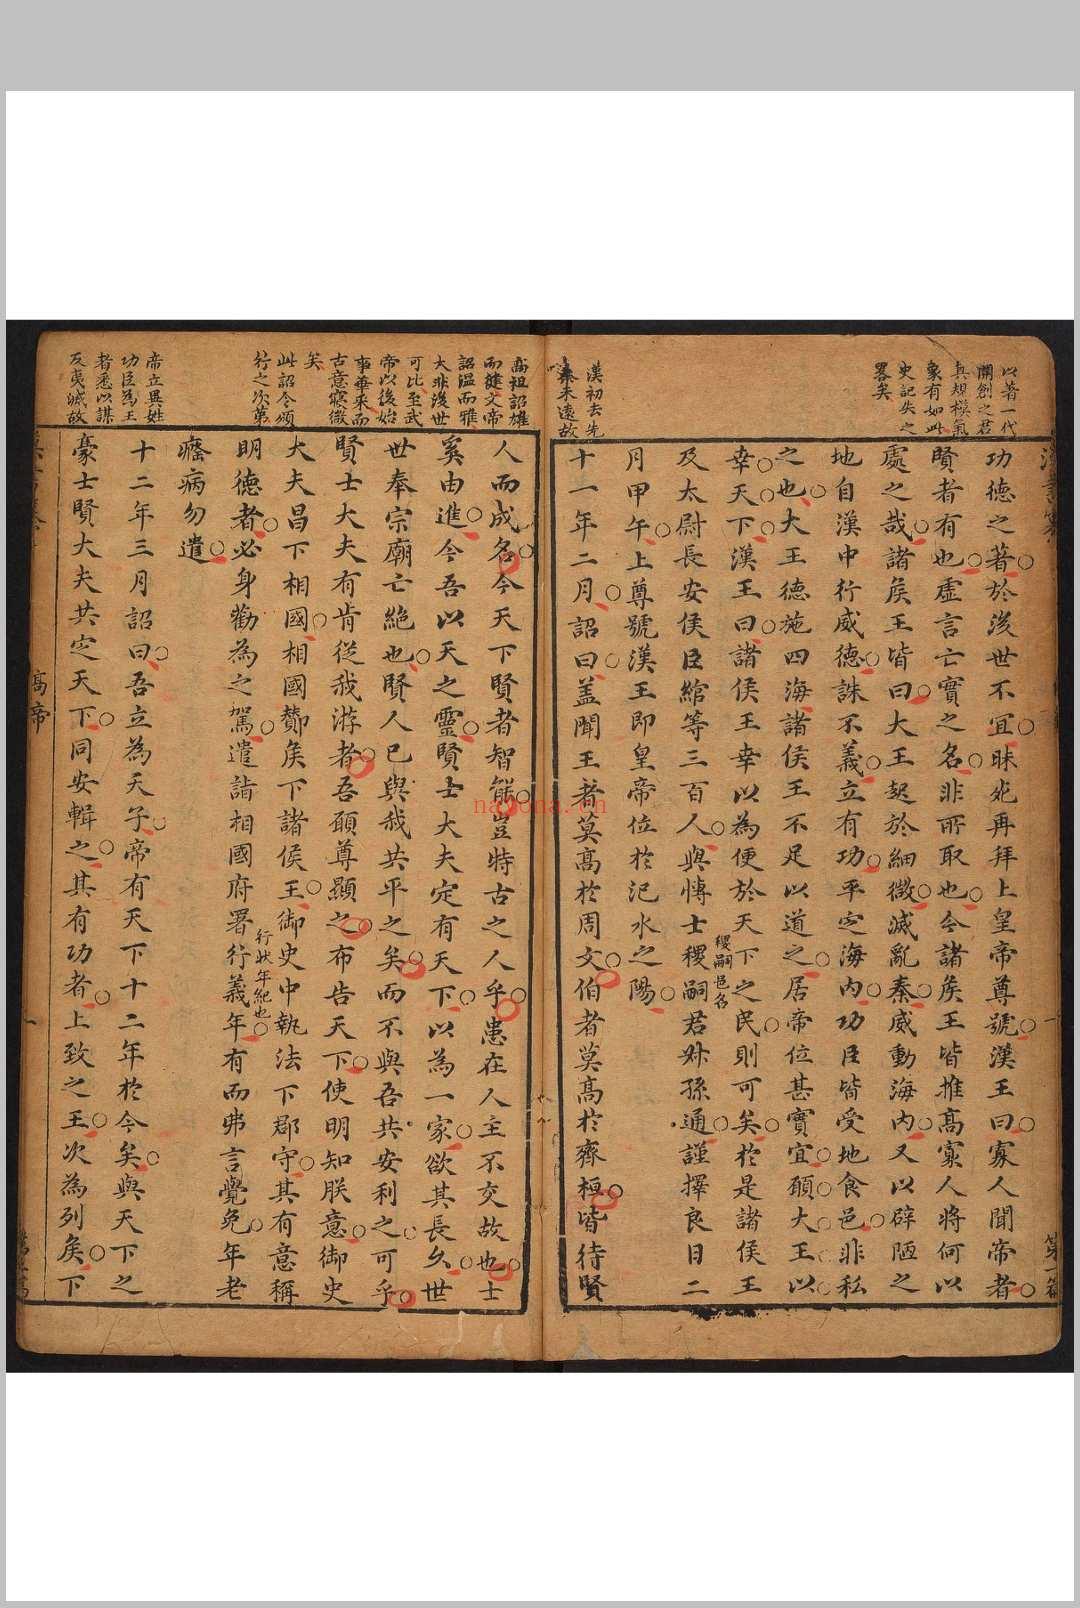 以著一代
開創之君
真規模氣
象有如此
史記失之
畧矣
漢初去先
秦未遠故
功德之著於後世不宜昧死再拜上皇帝尊號漢王曰寡人聞帝者
賢者有也虛言亡實之名非所取也今諸侯王皆推高寡人將何以
處之哉諸侯王皆曰大王起於細微滅亂秦威動海内又以辟陋之
地自漢中行威德誅不義立有功平定海内功臣皆受地食邑非私
之也大王德施四海諸侯王不足以道之居帝位甚實宜願大王以
幸天下漢王曰諸侯王幸以為便於天下之民則可矣於是諸侯王
及太尉長安侯臣綰等三百人與博士稷嗣君叔孫通謹擇良日二
稷嗣邑名
月甲午上尊號漢王即皇帝位於汜水之陽
十一年二月詔曰盖聞王者莫高於周文伯者莫高於齊桓皆待賢
第一篇
高祖詔雄
而健文帝
詔温而雅
大非後世
可比至武
帝以後始
事華采而
古意寖微
矣
此詔令頒
行之次第
帝立異姓
功臣為王
者悉以謀
反夷滅故
人而成名今天下賢者智能豈特古之人乎患在人主不交故也士
奚由進今吾以天之靈賢士大夫定有天下以為一家欲其長久世
世奉宗廟亡絶也賢人已與我共平之矣而不與吾共安利之可乎
賢士大夫有肯從我游者吾願尊顯之布告天下使明知朕意御史
大夫昌下相國相國酇侯下諸侯王御史中執法下郡守其有意稱
明德者必身勸為之駕遣詣相國府署行義年有而弗言覺免年老
行狀年紀也
癃病勿遣
十二年三月詔曰吾立為天子帝有天下十二年於今矣與天下之
豪士賢大夫共定天下同安輯之其有功者上致之王次為列侯下
高帝
一